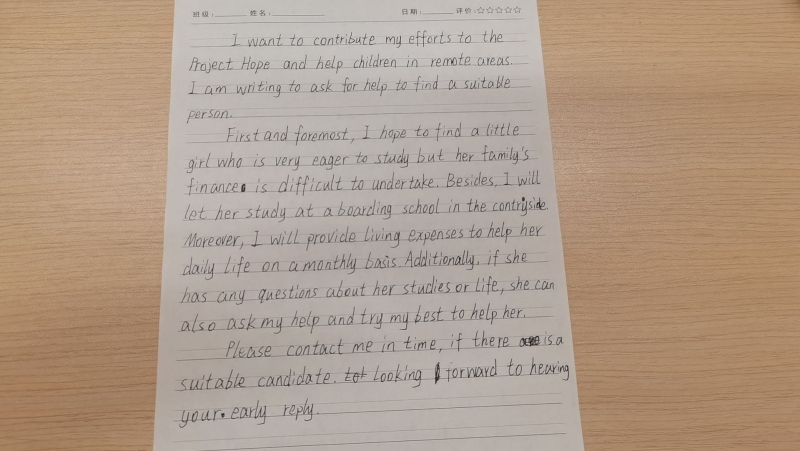 班级: 姓名: 日期: 评价:☆☆☆☆☆
I want to contribute my efforts to the
Project Hope and help children in remote areas.
I am writing to ask for help to find a suitable
person.
First and foremost, I hope to find a little
girl who is very eager to study but her family's
finance is difficult to undertake. Besides, I will
let her study at a boarding school in the contryside.
Moreover, I will provide living expenses to help her
daily life on a monthly basis. Additionally, if she
has any questions about her studies or life, she can
also ask my help and try my best to help her.
Please contact me in time, if there is a
suitable candidate. Looking forward to hearing
your early reply.